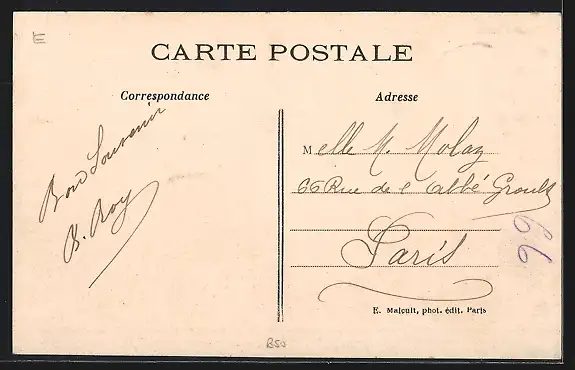 E
CARTE POSTALE
Correspondance
Adresse
Bon Souvenir
B. Roy
Melle M. Molaz
66 Rue de l'abbé Groult
Paris
66
E. Malcuit, phot. édit. Paris
B50